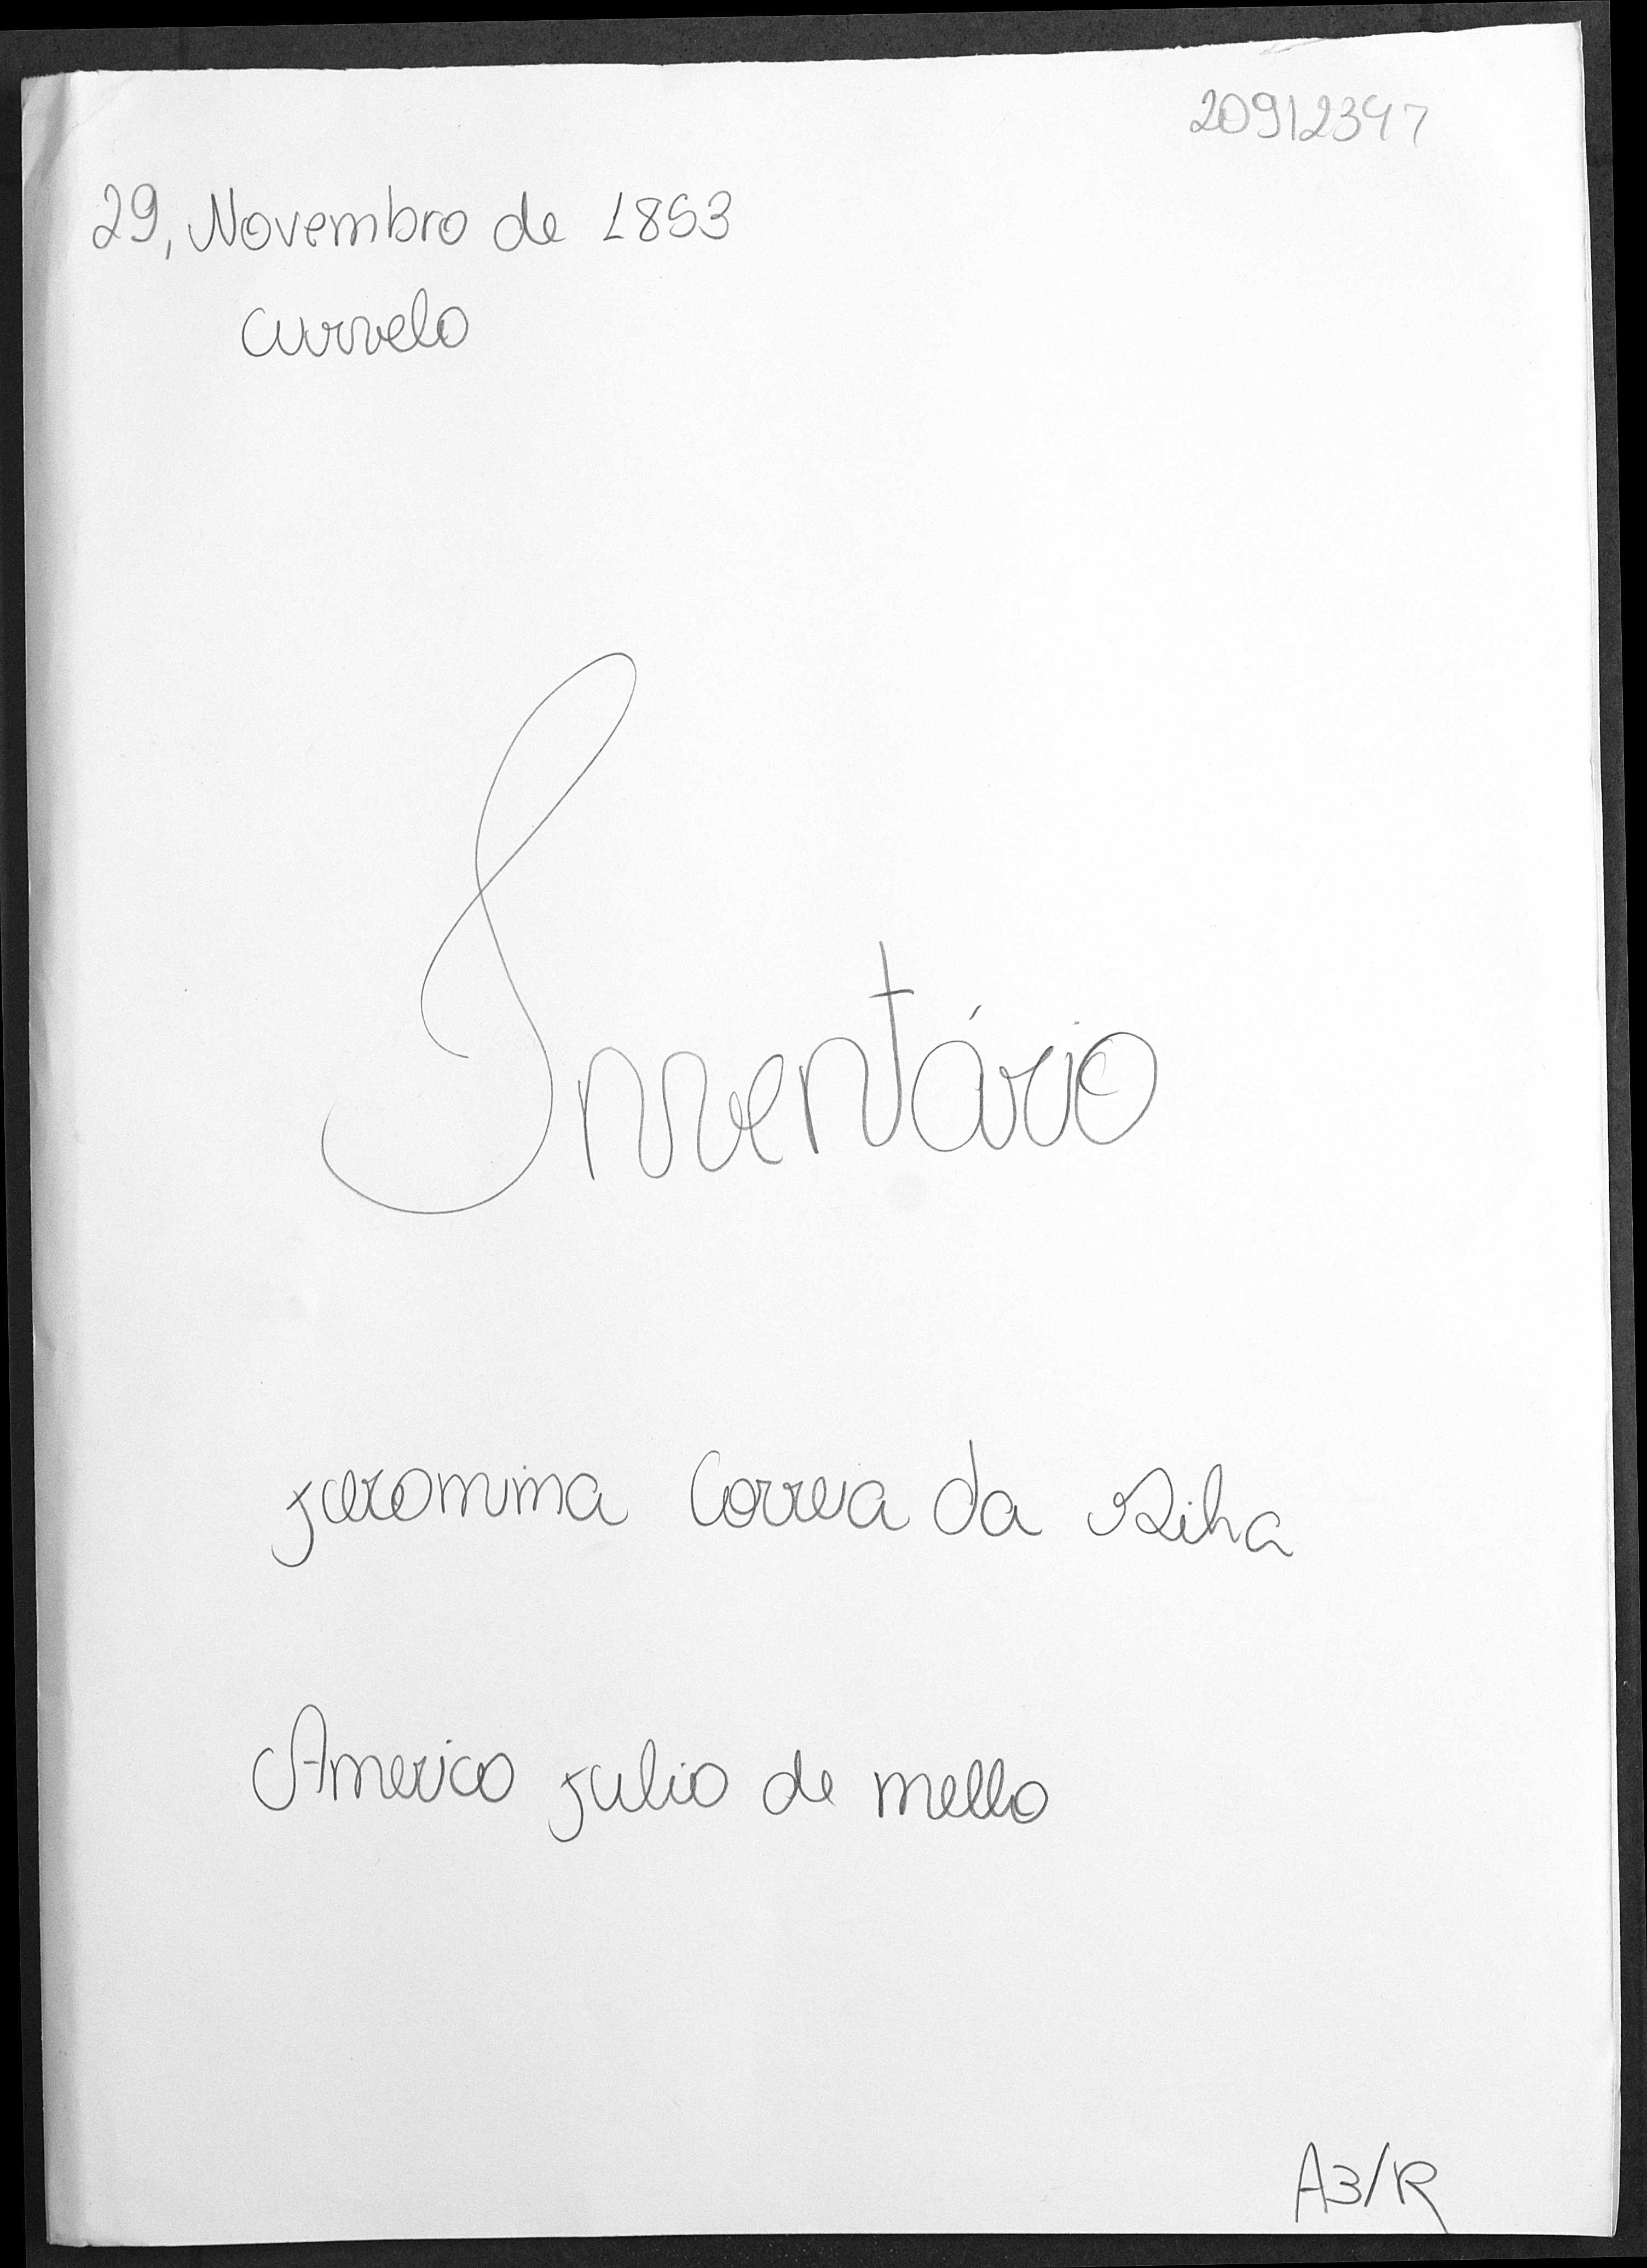 20912397
29, Novembro de 1853
Curvelo
Inventário
Jeronima Correia da Silva
Americo Julio de mello
A3/R